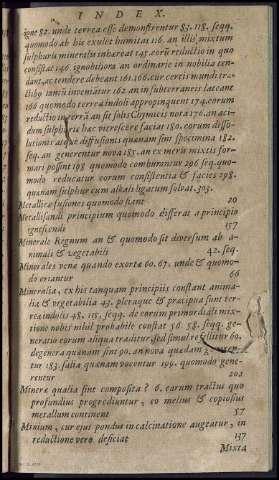 INDEX.
igne 82. unde terrea esse demonstrentur 83. 118. seqq.
quomodo ab his exulet humiditas 116. an illis mixtum
sulphuris mineralis inhæreat 145. eorũ reductio in quo
consistat 146. ignobiliora an ordinarie in nobilia ten-
dant, ac tendere debeant 161. 166. cur certis mundi
162. an in subterraneis lateant
166 quomodo terreæ indoli appropinquent 174. eorum
reductio in terrã an sit solis Chymicis nota 176. an aci-
dum sulphuris hac virescere faciat 180. eorum disso-
lutionis atque diffusionis quanam sint specimina 182.
seq. an generentur nova 185. an ex meris mixtis for-
mari possint 198 quomodo comburantur 296 seq. quo-
modo reducatur eorum consistentia & facies 298.
quanam sulphur cum alkali ligatum solvat. 303.
Metallicæ fusiones quomodo fiant 20
Metallisandi principium quomodo differat a principio
ignescendi 157
Minerale Regnum an & quomodo sit diversum ab a-
nimali & vegetabili 42. seq.
Minerales venæ quando exortæ 60. 67. unde & quomo-
do oriantur 66
Mineralia, ex his tanquam principiis constant anima-
lia & vegetabilia 43. pleraque & præcipua sunt ter-
rea indolis 48. 115. seqq. de eorum primordiali mix-
tione nobis nihil probabile constat 56. 58. seqq. ge-
neratio eorum aliqua traditur, sed simul rejicitur 60.
degenera quanam sint 90. an nova quædam generen-
tur 183. salia quanam voventur 199. quomodo gene-
rentur 202
Mineræ qualia sint composita? 6. earum tractus quo
profundius progrediuntur, eo melius & copiosius
metallum continent 57
Minium, cur ejus pondus in calcinatione augeatur, in
reductione vero deficiat 137
Mixta